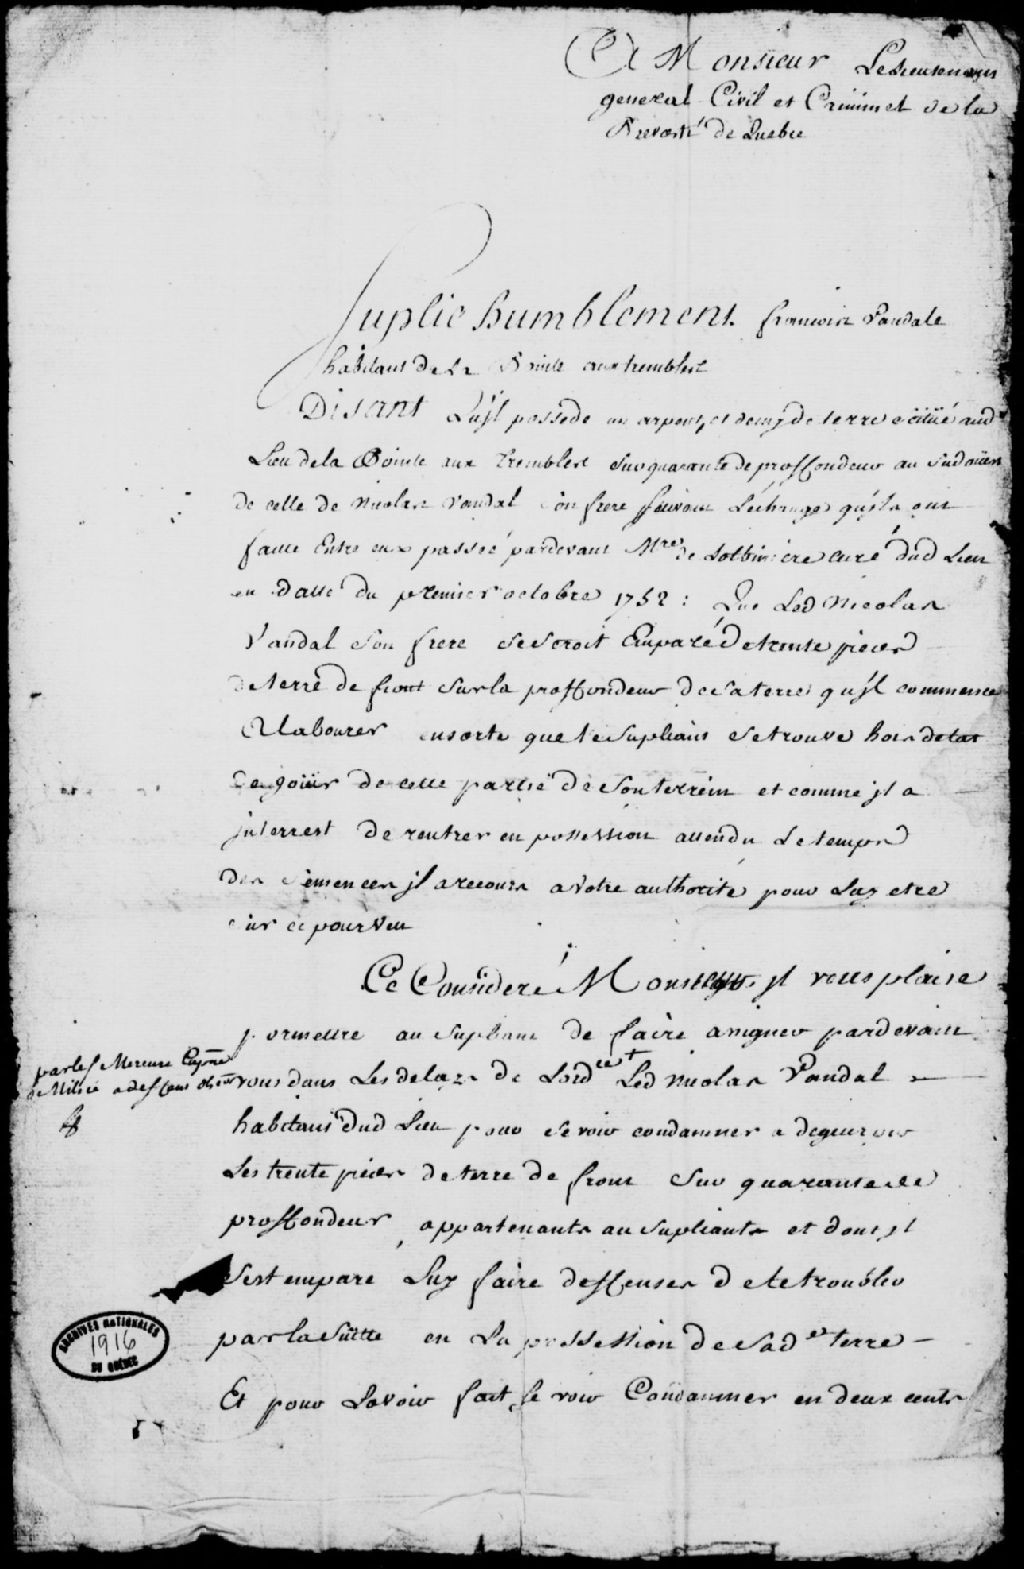 A Monsieur Lieutenant
general Civil et Criminel de la
Prevosté de Quebec
Suplie humblement francois Vandale
habitant de la Pointe aux trembles
Disant Qu'jl possede un arpent et demy de terre scitüé aud
Lieu de la Pointe aux Trembles sur quarante de proffondeur au sud oüest
de celle de Nicolas Vandal son frere suivant L'echange qu'ils ont
faitte Entre eux passeé pardevant Mre de Lotbiniere curé dud Lieu
en datte du premier octobre 1752 : Que Led Nicolas
Vandal Son frere se seroit Emparé de trente pieds
de terre de front sur la proffondeur de sa terre qu'jl commence
A labourer ensorte que le supliant se trouve hors detat
de joüir de cette partie de son terrein et comme jl a
jnterrest de rentrer en possession attendu le temps
des semences jl a recours a votre authorité pour luy etre
sur ce pourveu
Ce Consideré Monsieur jl vous plaise
permettre au supliant de faire assigner pardevant
vous dans les delais de Lord ce Led Nicolas Vandal
par le Sr Mercure Capne
de Milice
habitant dud Lieu pour se voir condamner a deguerpir
Les trente pieds de terre de front sur quarante de
proffondeur appartenants au supliant et dont jl
s'est emparé Luy faire deffenses de le troubler
par la suitte en La possession de sad te terre
Et pour Lavoir fait se voir Condamner en deux cents
ARCHIVES NATIONALES
1916
DU QUÉBEC